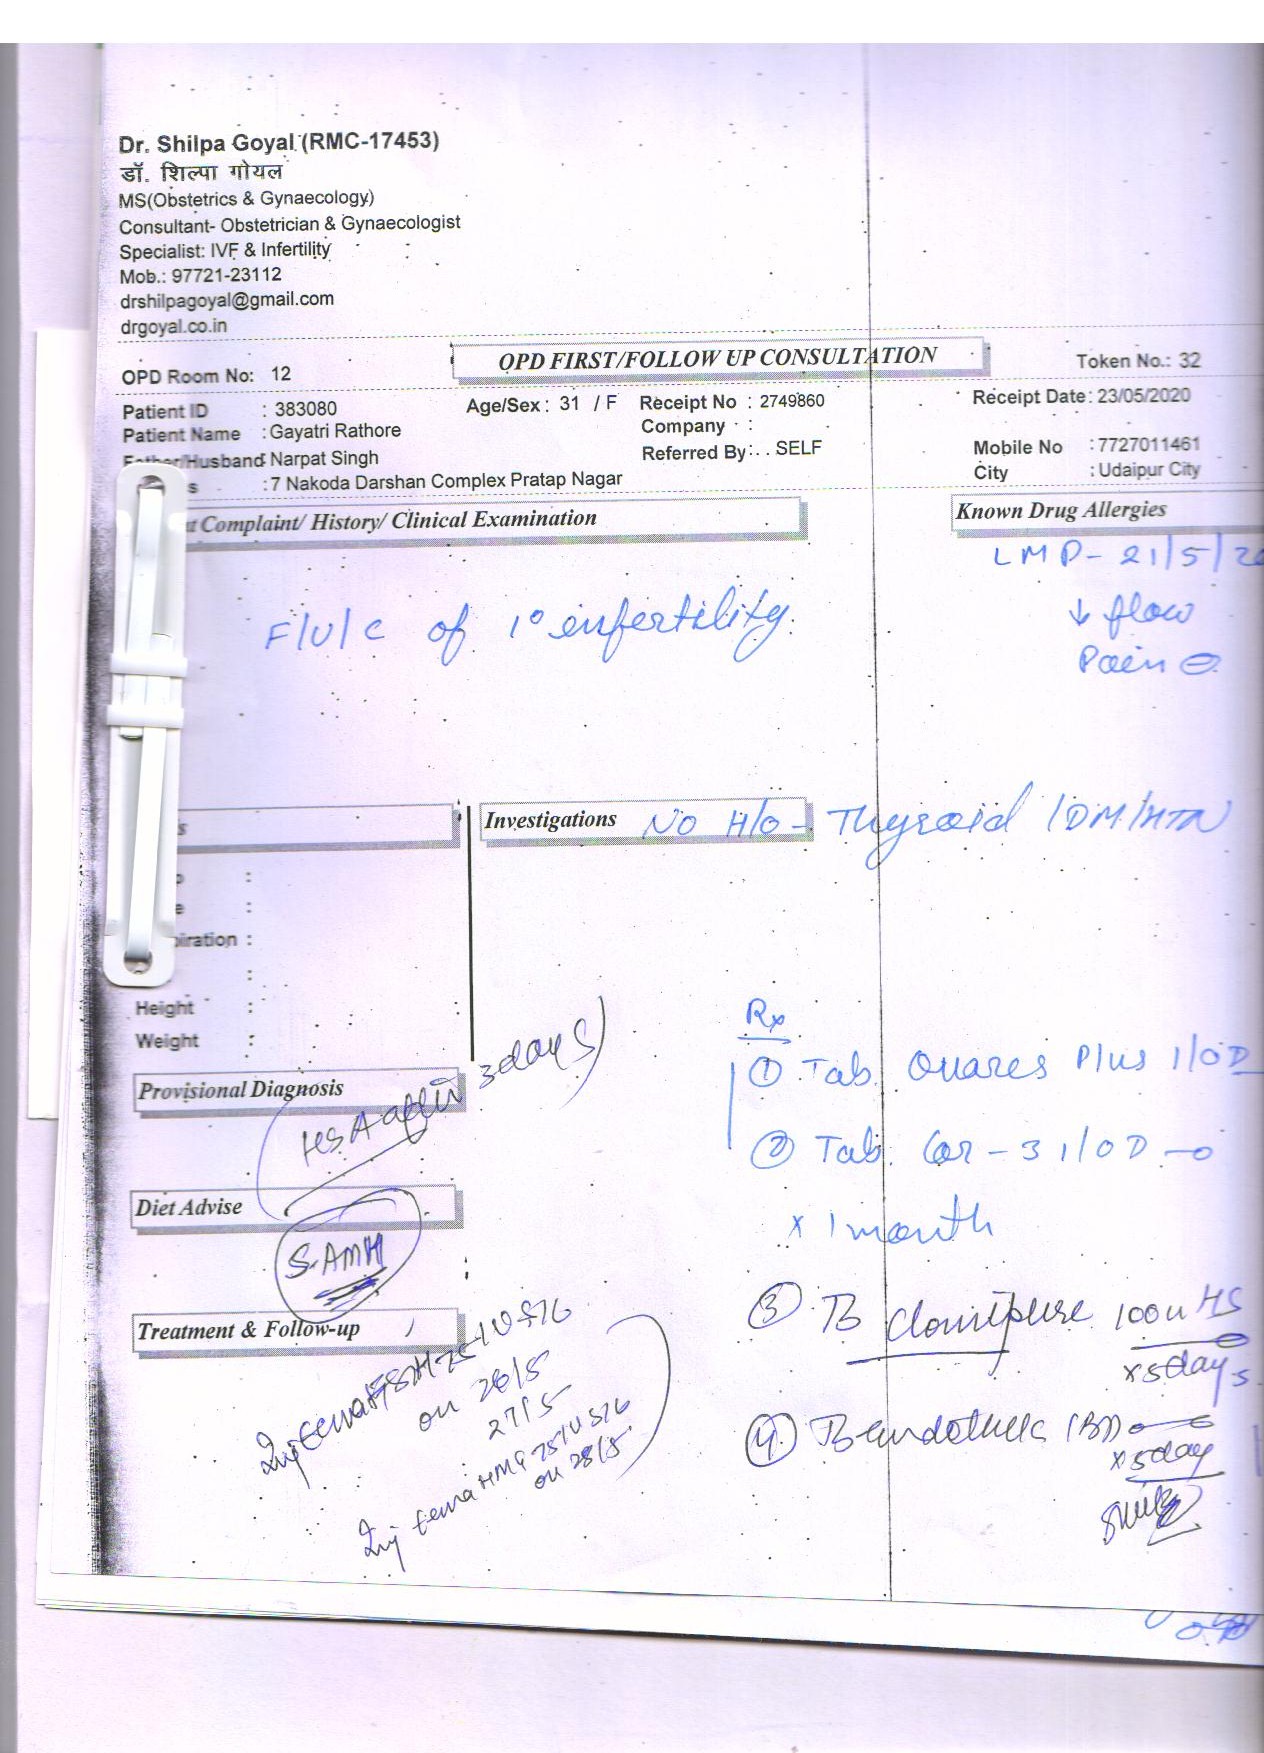 Dr. Shilpa Goyal (RMC-17453)
डॉ. शिल्पा गोयल
MS(Obstetrics & Gynaecology)
Consultant- Obstetrician & Gynaecologist
Specialist: IVF & Infertility
Mob.: 97721-23112
drshilpagoyal@gmail.com
drgoyal.co.in
OPD Room No: 12
OPD FIRST/FOLLOW UP CONSULTATION
Token No.: 32
Patient ID : 383080
Age/Sex : 31 / F
Receipt No : 2749860
Receipt Date: 23/05/2020
Patient Name : Gayatri Rathore
Company :
Father/Husband Narpat Singh
Referred By: SELF
Mobile No : 7727011461
: 7 Nakoda Darshan Complex Pratap Nagar
City : Udaipur City
Complaint/ History/ Clinical Examination
Known Drug Allergies
LMP - 21/5/
↓ flow
Pain
F/U/C of 1° infertility
Investigations
No H/o - Thyroid /DM/HTN
Height :
Weight :
Provisional Diagnosis
HSA after 3 days)
Diet Advise
S. AMH
Treatment & Follow-up
on 26/5
27/5
on 28/5
Rx
① Tab. Ovares Plus 1/OD
② Tab. - 3 1/OD
x 1 month
③ Clomipure 100 HS
x 5 days
④
x 5 day